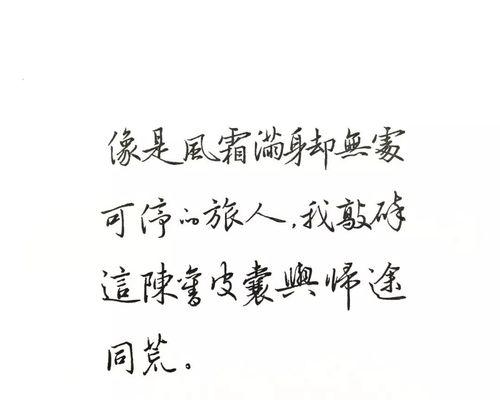 像是風霜滿身却無處
可停的旅人,我敲碎
這陳舊皮囊與歸途
同荒。